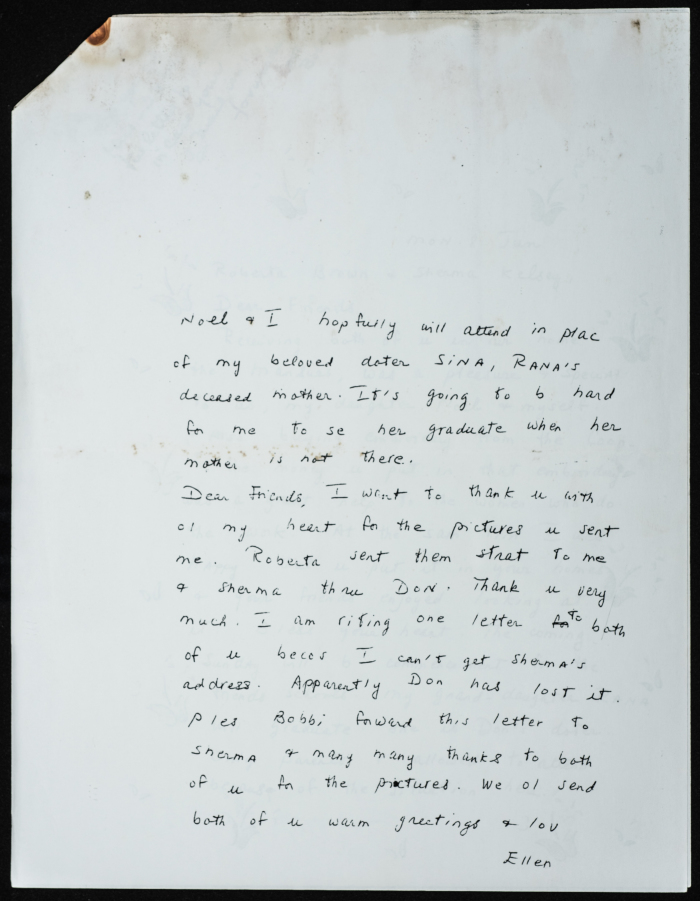 Noel & I hopfully will attend in plac
of my beloved doter SiNA, RANA'S
deceased mother. It's going to b hard
for me to se her graduate when her
mother is not there.
Dear Friends, I want to thank u with
ol my heart for the pictures u sent
me. Roberta sent them strat to me
& Sherma thru Don. Thank u very
much. I am riting one letter to both
of u becos I can't get Sherma's
address. Apparently Don has lost it.
Ples Bobbi forward this letter to
Sherma & many many thanks to both
of u for the pictures. We ol send
both of u warm greetings & lov
Ellen